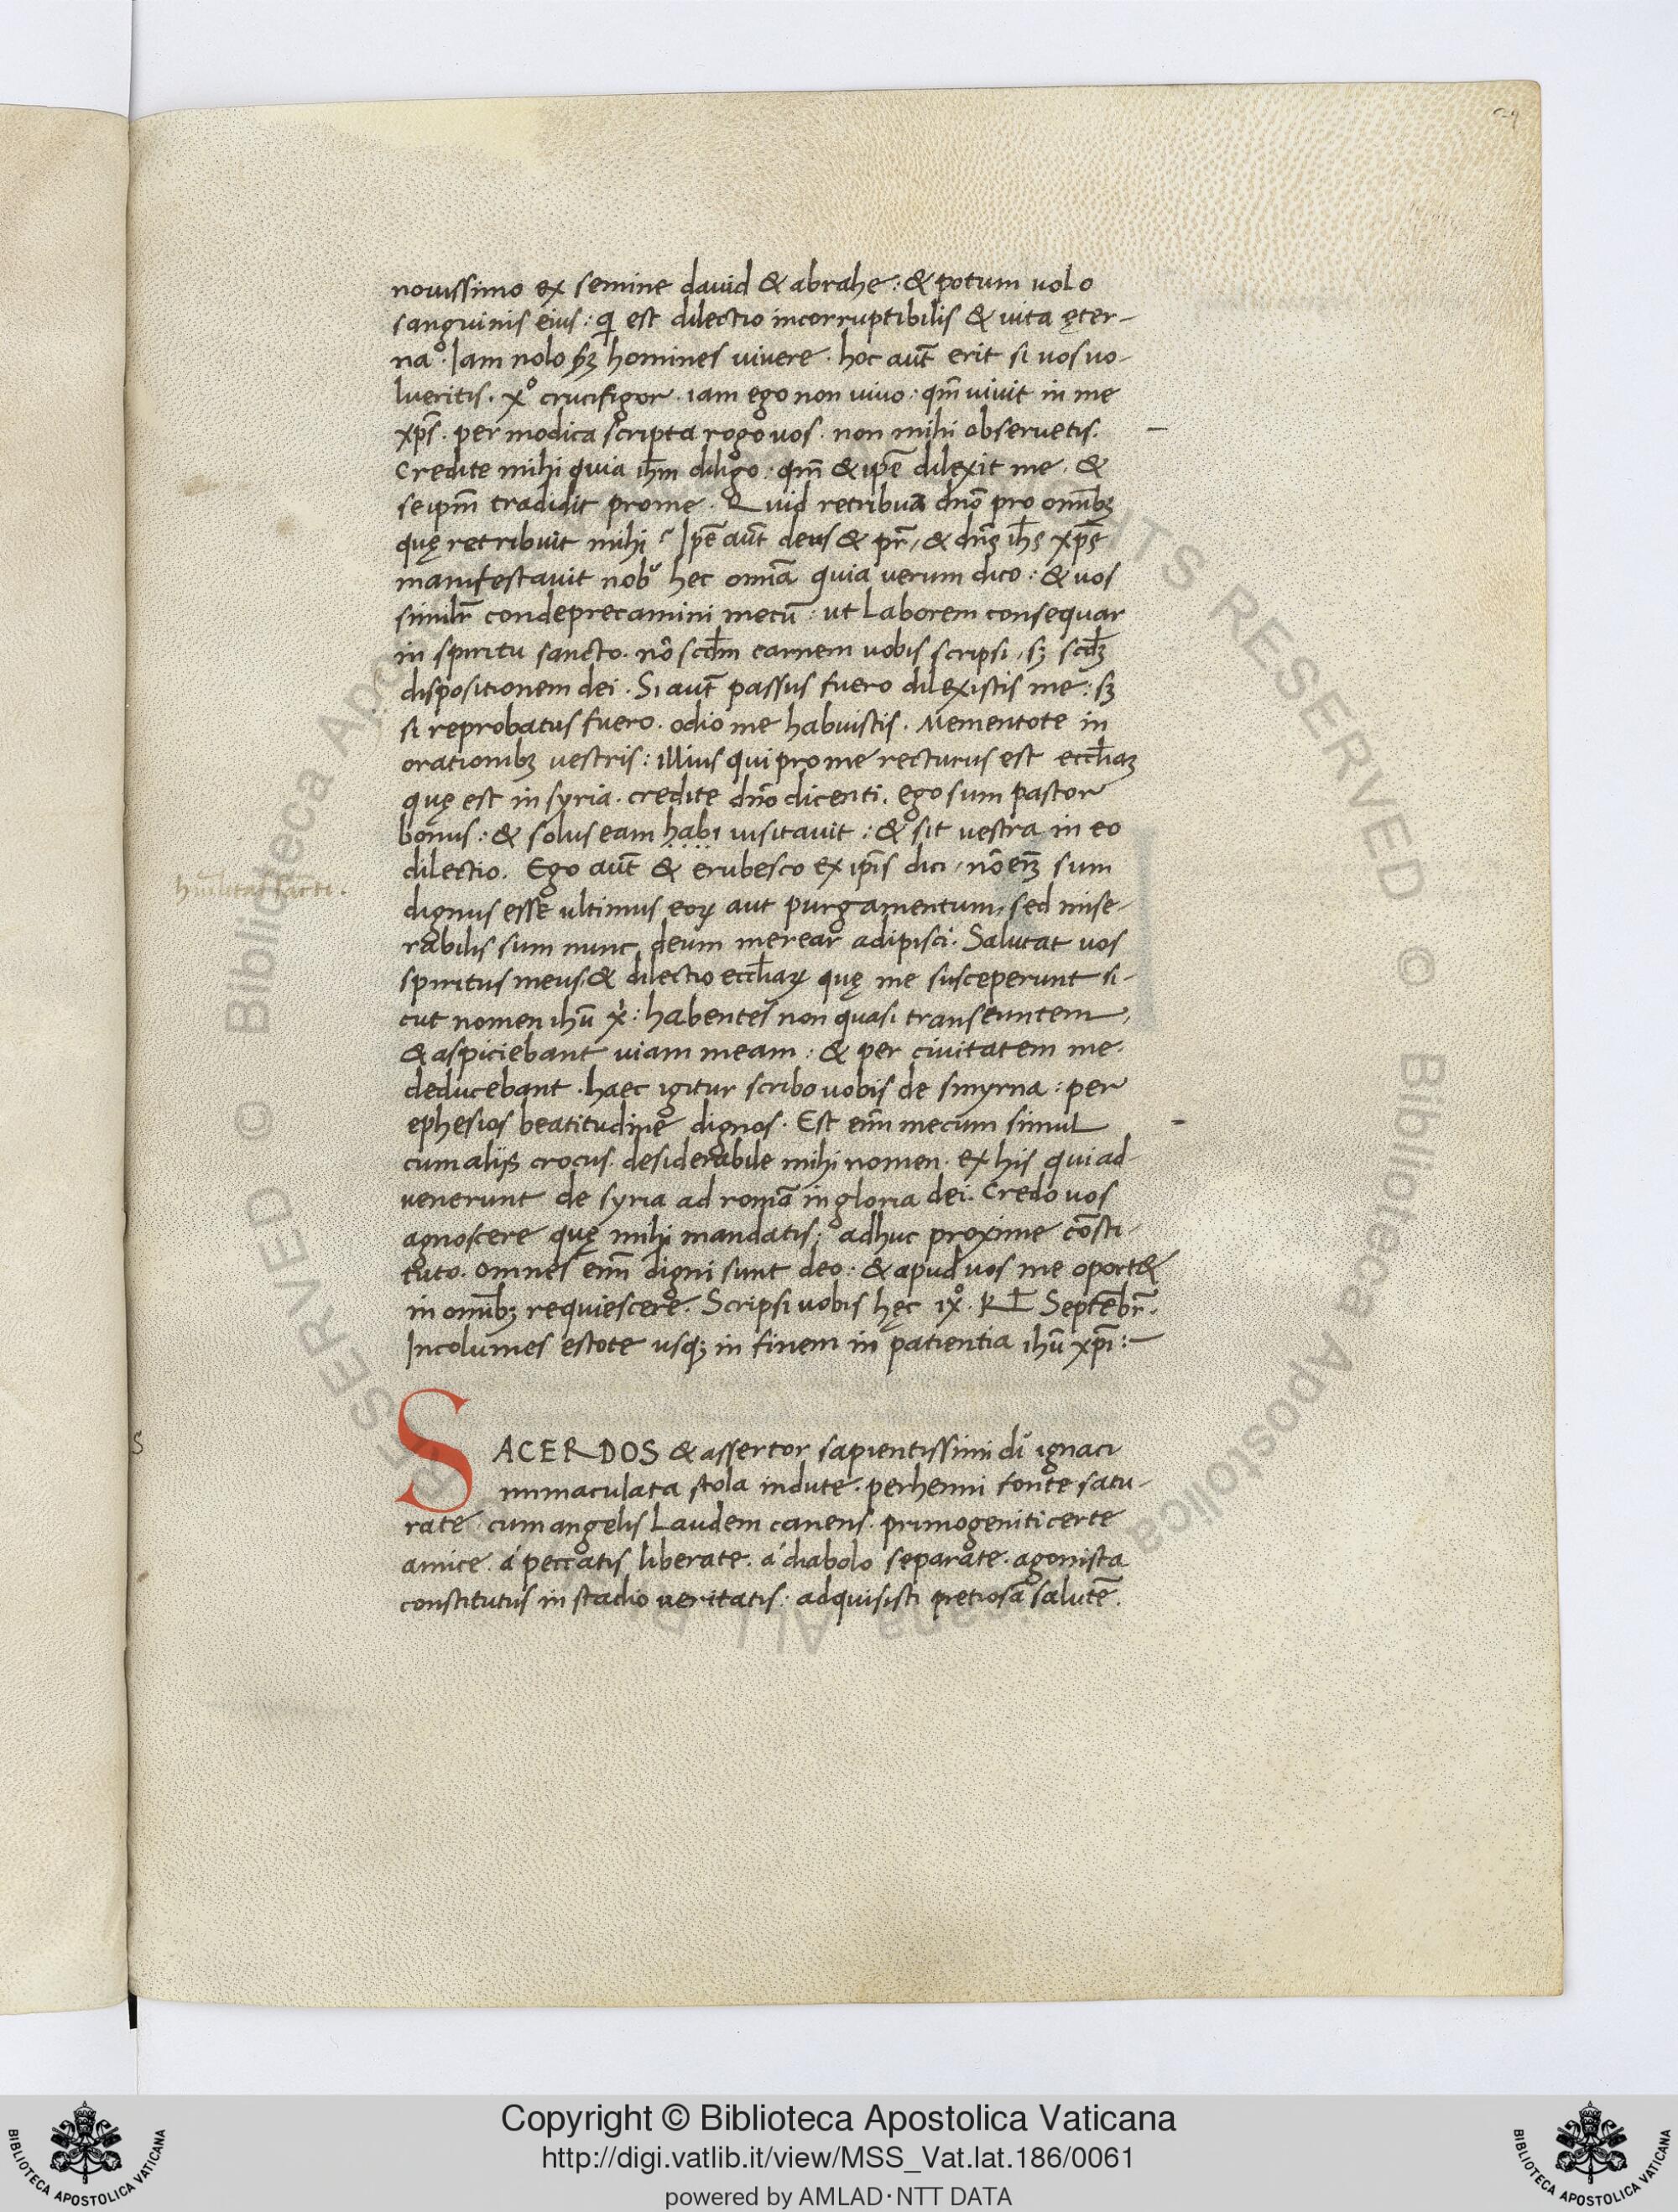 novissimo ex semine david & abrahe : & potum volo
sanguinis eius : q̄ est dilectio incorruptibilis & vita ęter-
na . Iam nolo homines vivere . hoc aut̄ erit si vos vo-
lueritis . χ° crucifigor . iam ego non vivo : qm̄ vivit in me
xp̄s . per modica scripta rogo vos . non mihi observetis .
Credite mihi quia ih̄m diligo : qm̄ & ip̄e dilexit me . &
se ip̄m tradidit pro me . Quid retribuā dn̄o pro omībꝫ
quę retribuit mihi ? Ip̄e aut̄ deus & pr̄ , & dn̄s ih̄s xp̄s
manifestavit nob̾ hec omīa quia verum dico : & vos
simil̄r condeprecamini mecū : ut laborem consequar
in spiritu sancto . nō scd̄m carnem vobis scripsi , sꝫ scd̄ꝫ
dispositionem dei . Si aut̄ passus fuero dilexistis me : sꝫ
si reprobatus fuero . odio me habuistis . Mementote in
orationibꝫ vestris : illius qui pro me recturus est eccl̄iaꝫ
quę est in syria . credite dn̄o dicenti . ego sum pastor
bonus : & solus eam habi visitavit : & sit vestra in eo
dilectio . Ego aut̄ & erubesco ex ip̄is dici , nō en̄ꝫ sum
dignus esse ultimus eoꝝ aut purgamentum , sed mise-
rabilis sum nunc deum merear adipisci . Salutat vos
spiritus meus . & dilectio eccl̄iaꝝ quę me susceperunt si-
cut nomen ihū χ̾ : habentes non quasi transeuntem ,
& aspiciebant viam meam : & per civitatem me .
deducebant . haec igitur scribo vobis de smyrna : per
ephesios beatitudine dignos . Est em̄ mecum simul
cum alijs crocus . desiderabile mihi nomen . ex his qui ad-
venerunt de syria ad romā in gloria dei . Credo vos
agnoscere quę mihi mandatis : adhuc proxime cōsti-
tuto . omnes em̄ digni sunt deo : & apud vos me oport&
in omībꝫ requiescere . Scripsi vobis hęc ix° . Kł Septēbr̄ .
Incolumes estote usqꝫ in finem in patientia ihū xp̄i : —
humilitas sancti .
SACERDOS & assertor sapientissimi dī ignaci
immaculata stola indute . perhenni fonte satu-
rate . cum angelis laudem canens . primogeniti certe
amice . á peccatis liberate . á diabolo separate . agonista
constitutus in stadio veritatis : adquisisti pretiosā salutē .
Copyright © Biblioteca Apostolica Vaticana
http://digi.vatlib.it/view/MSS_Vat.lat.186/0061
powered by AMLAD·NTT DATA
BIBLIOTECA APOSTOLICA VATICANA
BIBLIOTECA APOSTOLICA VATICANA